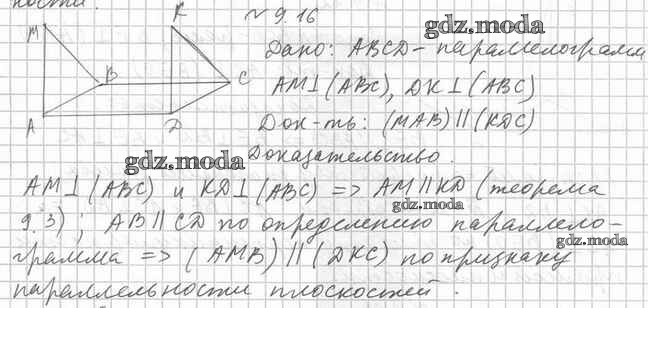 ности.
№ 9.16
gdz.moda
M
K
B
C
A
D
Дано: ABCD - параллелограмм
AM⊥(ABC), DK⊥(ABC)
Док-ть: (MAB)∥(KDC)
gdz.moda
Доказательство.
AM⊥(ABC) и KD⊥(ABC) => AM∥KD (теорема
gdz.moda
9.3); AB∥CD по определению параллело-
gdz.moda
грамма => (AMB)∥(DKC) по признаку
параллельности плоскостей.